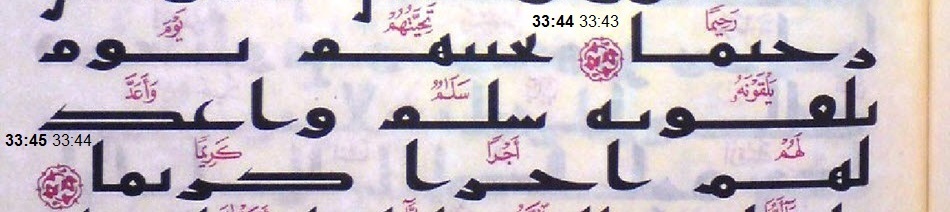 33:44 33:43
رَحِيمًا تَحِيَّتُهُمْ يَوْمَ
رحيما تحيتهم يوم
يَلْقَوْنَهُ سَلَامٌ وَأَعَدَّ
يلقونه سلم واعد
33:45 33:44
لَهُمْ أَجْرًا كَرِيمًا
لهم اجرا كريما